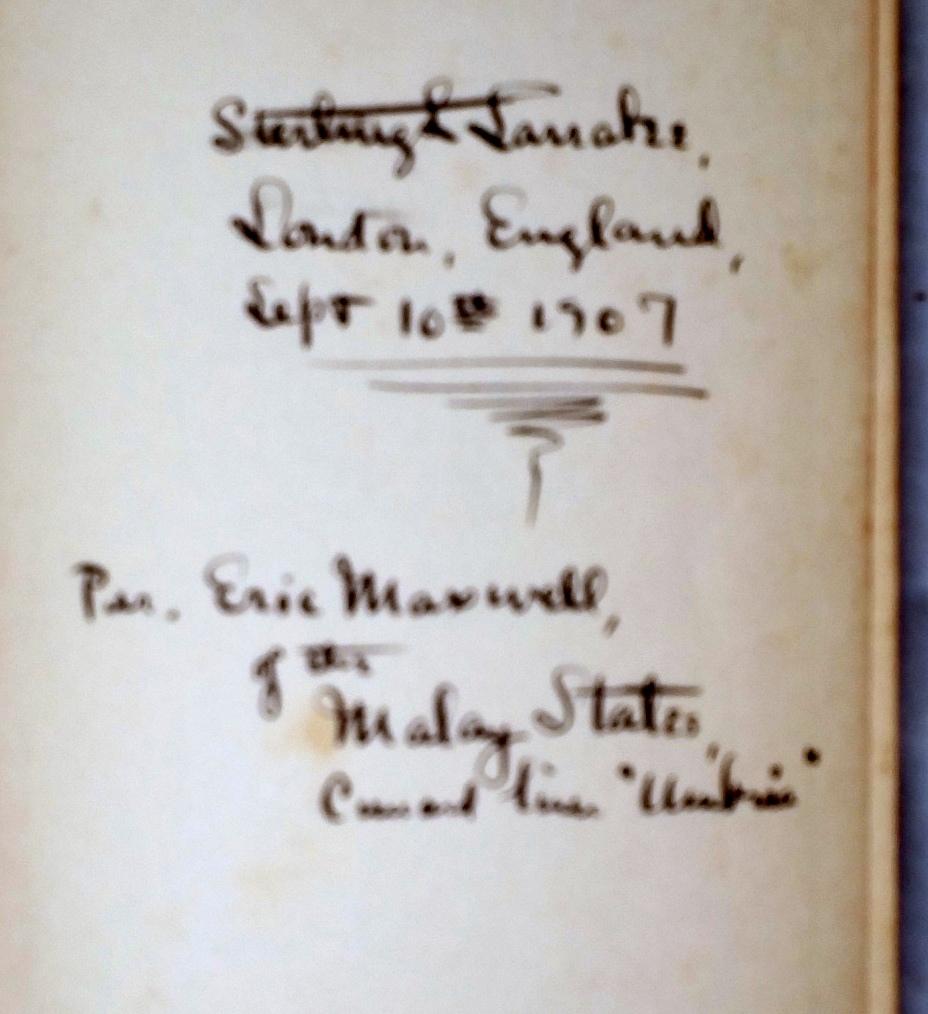 London, England,
Sept 10th 1907
Per. Eric Maxwell,
of the
Malay States,
Cunard line "Umbria"